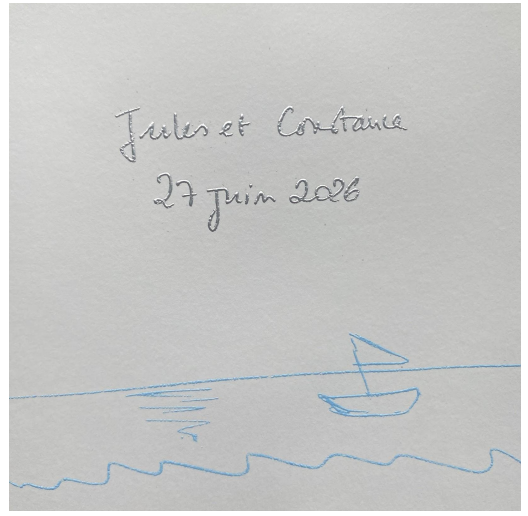 Jules et Constance
27 juin 2026